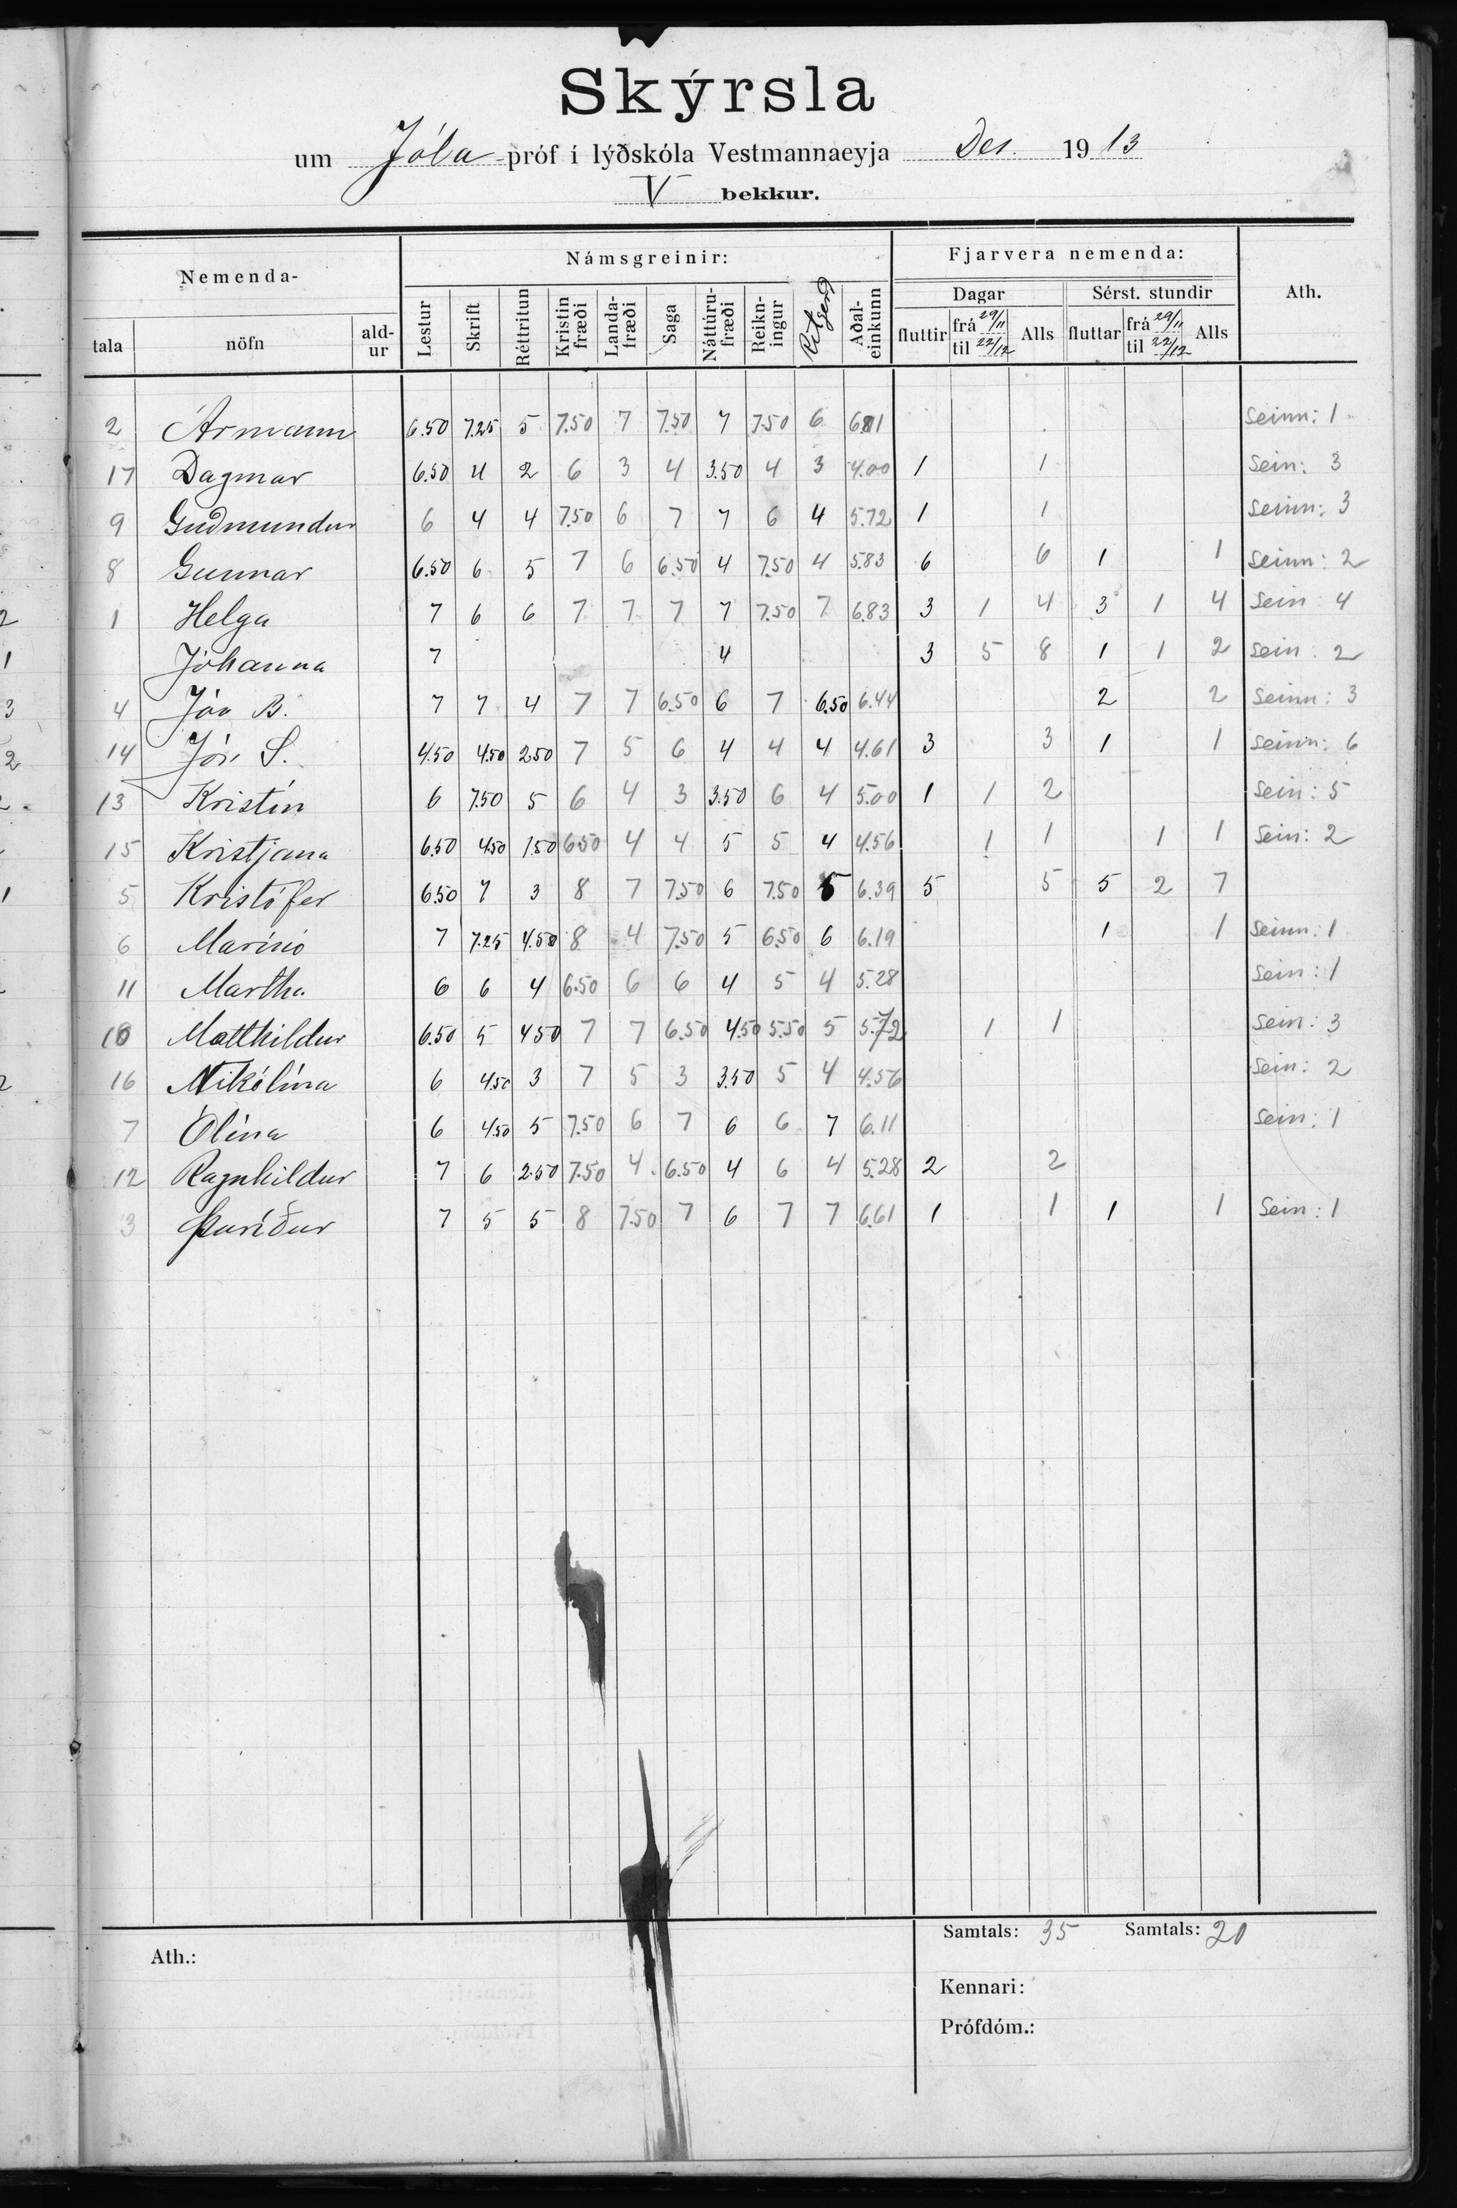 Skýrsla
um Jóla-próf í lýðskóla Vestmannaeyja Des. 1913
V bekkur.
Nemenda- Námsgreinir: Fjarvera nemenda: Ath.
Dagar Sérst. stundir
tala nöfn ald-ur Lestur Skrift Réttritun Kristin fræði Landa-fræði Saga Náttúru-fræði Reikn-ingur Ritgerð Aðal-einkunn fluttir frá 29/11 til 22/12 Alls fluttar frá 29/11 til 22/12 Alls
2 Ármann 6.50 7.25 5 7.50 7 7.50 7 7.50 6 6.81 Seinn: 1
17 Dagmar 6.50 4 2 6 3 4 3.50 4 3 4.00 1 1 Sein: 3
9 Guðmundur 6 4 4 7.50 6 7 7 6 4 5.72 1 1 Seinn: 3
8 Gunnar 6.50 6 5 7 6 6.50 4 7.50 4 5.83 6 6 1 1 Seinn: 2
1 Helga 7 6 6 7 7 7 7 7.50 7 6.83 3 1 4 3 1 4 Sein 4
Jóhanna 7 4 3 5 8 1 1 2 Sein: 2
4 Jón B. 7 7 4 7 7 6.50 6 7 6.50 6.44 2 2 Seinn: 3
14 Jón S. 4.50 4.50 2.50 7 5 6 4 4 4 4.61 3 3 1 1 Seinn: 6
13 Kristín 6 7.50 5 6 4 3 3.50 6 4 5.00 1 1 2 Sein: 5
15 Kristjana 6.50 4.50 1.50 6.50 4 4 5 5 4 4.56 1 1 1 1 Sein: 2
5 Kristófer 6.50 7 3 8 7 7.50 6 7.50 5 6.39 5 5 5 2 7
6 Marínó 7 7.25 4.50 8 4 7.50 5 6.50 6 6.19 1 1 Seinn: 1
11 Martha 6 6 4 6.50 6 6 4 5 4 5.28 Sein: 1
10 Matthildur 6.50 5 4.50 7 7 6.50 4.50 5.50 5 5.72 1 1 Sein: 3
16 Nikólína 6 4.50 3 7 5 3 3.50 5 4 4.56 Sein: 2
7 Ólína 6 4.50 5 7.50 6 7 6 6 7 6.11 Sein: 1
12 Ragnhildur 7 6 2.50 7.50 4 6.50 4 6 4 5.28 2 2
3 Þuríður 7 5 5 8 7.50 7 6 7 7 6.61 1 1 1 1 Sein: 1
Samtals: 35 Samtals: 20
Ath.:
Kennari:
Prófdóm.: